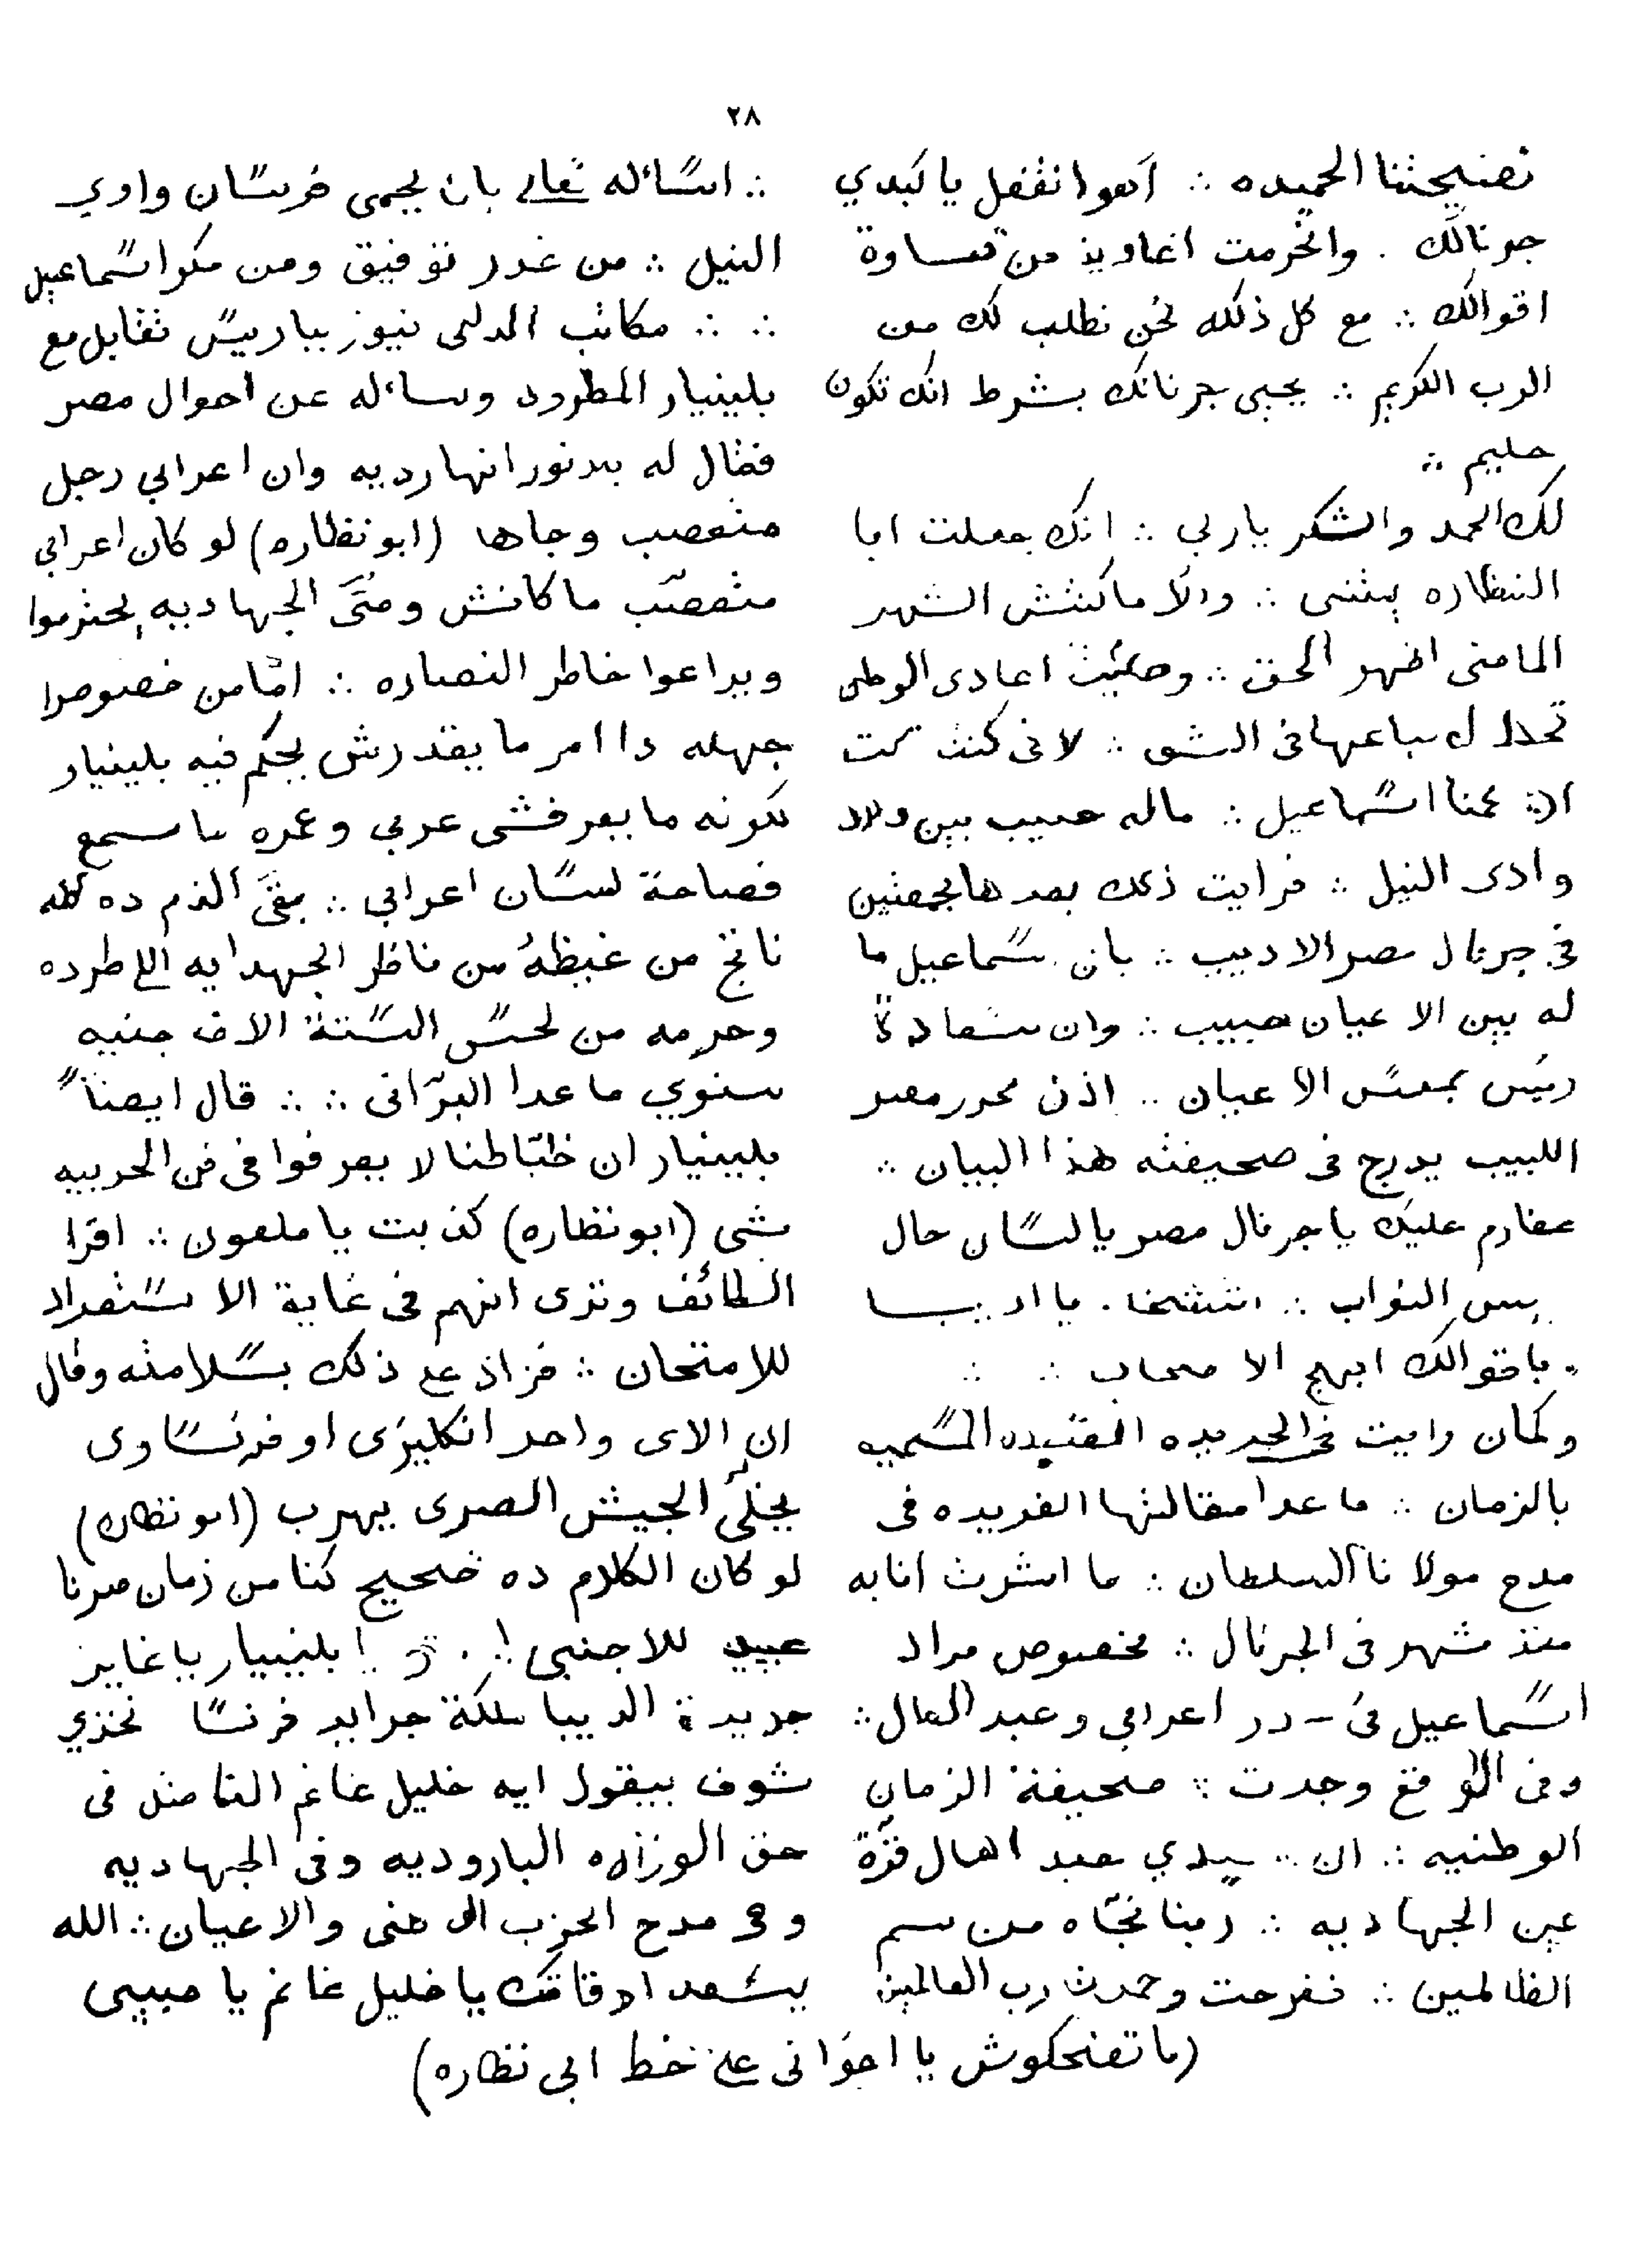 ٢٨
نصيحتنا الحميده ∴ اهوا نقفل يا كبدي
جرنالك . وانخرمت اغاويذ من قساوة
اقوالك ∴ مع كل ذلك نحن نطلب لك من
الرب الكريم ∴ يحيى جرنانك بشرط انك تكون
حليم ∴
لك الحمد والشكر يا ربي ∴ انك جعلت ابا
النظاره بيتنبى ∴ والا ما كنتش الشهر
الماضى اظهر الحق ∴ وحكيت اعادى الوطن
سباعها فى الشق ∴ لانى كنت كتبت
ان عمنا اسماعيل ∴ ماله حبيب بين ولاد
وادى النيل ∴ فرايت ذلك بعدها بجمعتين
فى جرنال مصر الاديب ∴ بان سماعيل ما
له بين الاعيان حبيب ∴ وان سعادة
رئيس مجلس الاعيان .. اذن محرر مصر
اللبيب يدرج فى صحيفته هذا البيان ∴
عفارم عليك يا جرنال مصر يا لسان حال
النواب ∴ يا اديب
باقوالك ابهج الاصحاب ∴ ∴
وكمان رايت فى الجريده المفيده المسميه
بالزمان ∴ ما عدا مقالتها الفريده فى
مدح مولانا السلطان ∴ ما اشرت انا به
منذ شهر فى الجرنال ∴ بخصوص مراد
اسماعيل فى در اعرابي وعبد العال ∴
وفى الواقع وجدت صحيفة الزمان
الوطنيه ∴ ان سيدي عبد العال قرة
عين الجهاديه ∴ ربنا نجاه من سم
الظالمين ∴ ففرحت وحمدت رب العالمين
∴ اساله تعالى بان يحمى فرسان وادي
النيل ∴ من غدر توفيق ومن مكر اسماعيل
∴ ∴ مكاتب الدلى نيوز بباريس تقابل مع
بلينيار المطرود وساله عن احوال مصر
فقال له بدنور انها رديه وان اعرابي رجل
متعصب وجاها (ابو نظاره) لو كان اعرابي
متعصب ما كانش وصى الجهاديه يحترموا
ويراعوا خاطر النصاره ∴ امّا من خصوص
جهله دا امر ما يقدرش يحكم فيه بلينيار
لكونه ما يعرفشى عربي وعمره ما سمع
فصاحة لسان اعرابي ∴ بقى الذم ده كله
ناتج من غيظه من ناظر الجهدايه اللى طرده
وحرمه من لحس الستة الاف جنيه
سنوي ما عدا البرّانى ∴ ∴ قال ايضاً
بلينيار ان ظبّاطنا لا يعرفوا فى فن الحربيه
شى (ابو نظاره) كذبت يا ملعون ∴ اقرا
الطائف وترى انهم فى غاية الاستعداد
للامتحان ∴ فزاد على ذلك بسلامته وقال
ان الاى واحد انكليزى او فرنساوى
يخلّى الجيش المصرى يهرب (ابو نظاره)
لو كان الكلام ده صحيح كنا من زمان صرنا
عبيد للاجنبى ! بلينيار يا غايز
جريدة الديبا ملكة جرايد فرنسا تخزي
شوف بيقول ايه خليل غانم الفاضل فى
حق الوزاره الباروديه وفى الجهاديه
وفى مدح الحزب الوطنى والاعيان ∴ الله
يسعد اوقاتك يا خليل غانم يا حبيبى
(ما تضحكوش يا اخوانى على خط ابى نظاره)